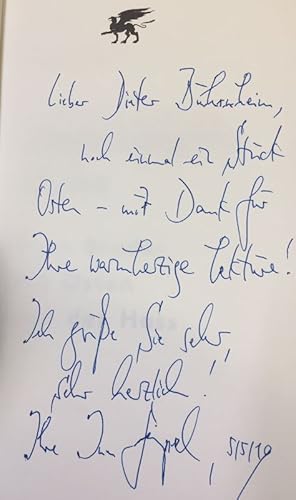 Lieber Dieter Bührnheim,
noch einmal ein Stück
Osten – mit Dank für
Ihre warmherzige Lektüre!
Ich grüße Sie sehr,
sehr herzlich!
Ihre Ines Geipel, 5/5/19